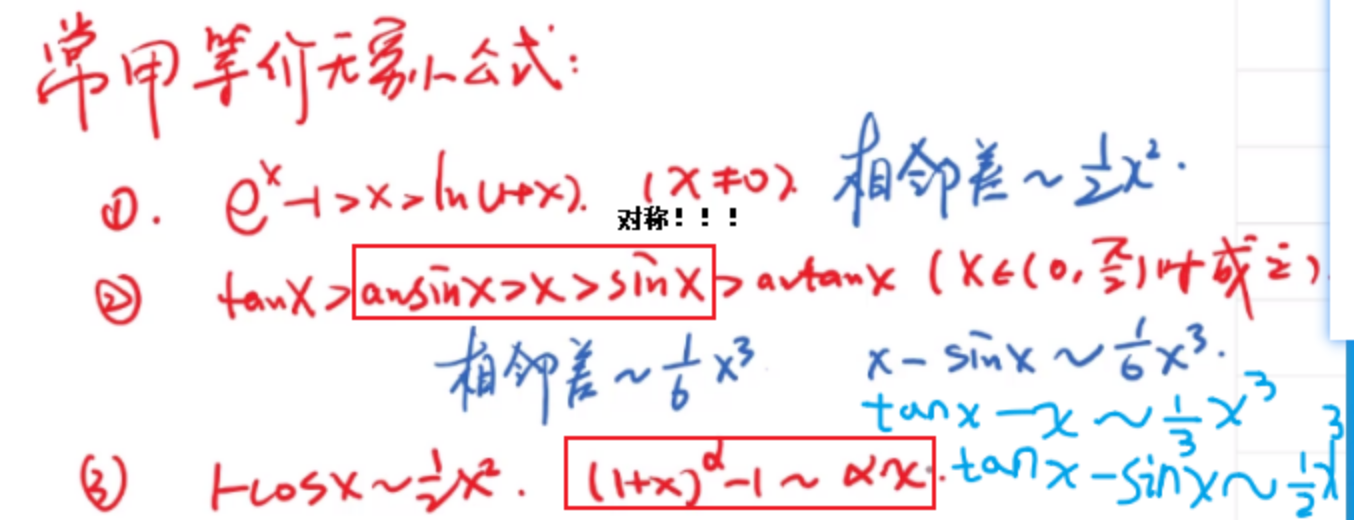 常用等价无穷小公式:
①. eˣ-1>x>ln(1+x). (x≠0). 相邻差~½x².
对称!!!
② tanx>arcsinx>x>sinx>arctanx (x∈(0,π/2)时成立)
相邻差~1/6 x³ x-sinx~1/6 x³.
tanx-x~1/3 x³
③ 1-cosx~½x². (1+x)^α-1~αx. tanx-sinx~½x³